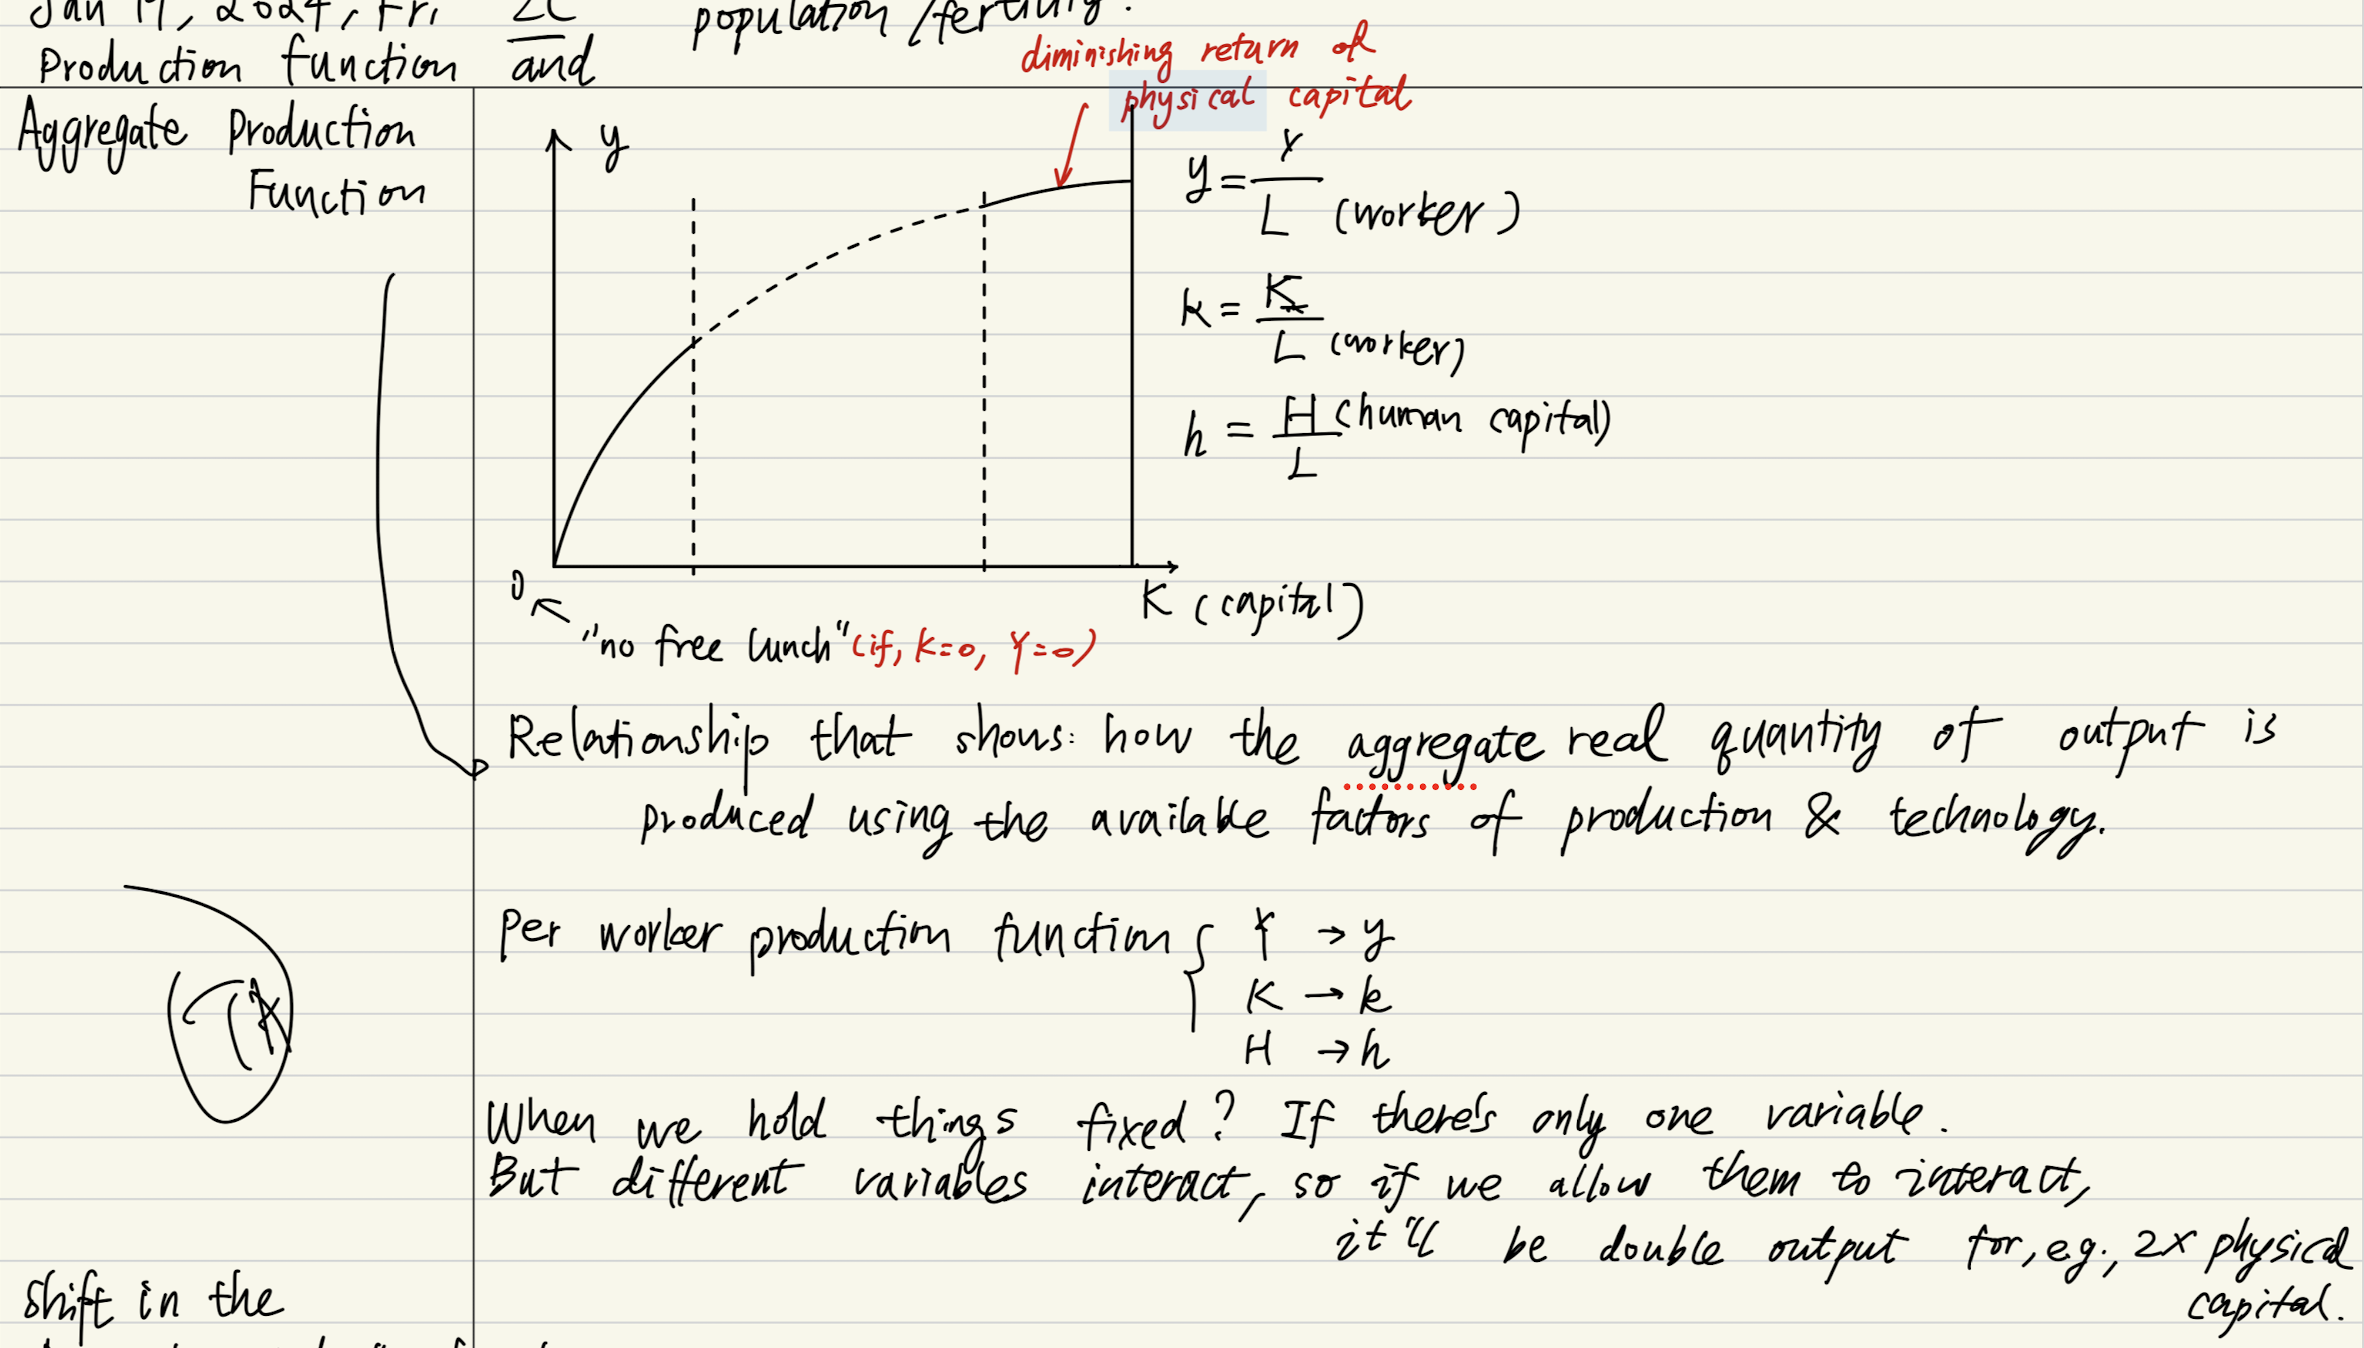 Jan 19, 2024, Fri, 2C
population/fertility.
Production function and
diminishing return of
physical capital
Aggregate Production
Function
y
y = Y / L (worker)
k = K / L (worker)
h = H (human capital) / L
0
K (capital)
"no free lunch" (if, K=0, Y=0)
Relationship that shows: how the aggregate real quantity of output is
produced using the available factors of production & technology.
Per worker production function { Y → y
K → k
H → h
When we hold things fixed? If there's only one variable.
But different variables interact, so if we allow them to interact,
it'll be double output for, e.g., 2x physical
capital.
shift in the